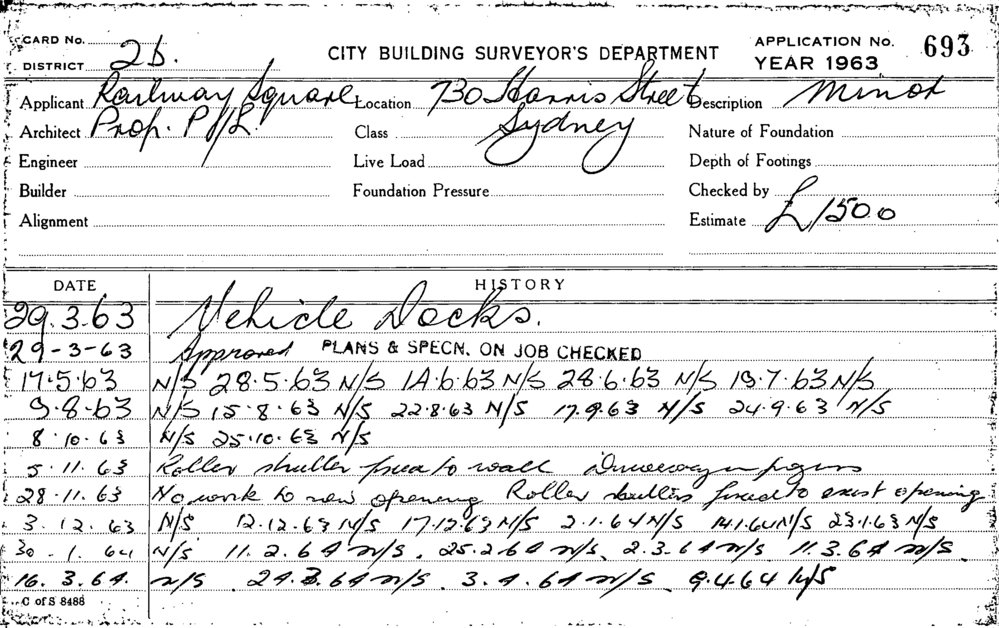 CARD No.
DISTRICT 2b.
CITY BUILDING SURVEYOR'S DEPARTMENT
APPLICATION No. 693
YEAR 1963
Applicant Railway Square Location 730 Harris Street Description Minor
Architect Prop. P/L. Class Sydney Nature of Foundation
Engineer Live Load Depth of Footings
Builder Foundation Pressure Checked by
Alignment Estimate £1500
DATE HISTORY
29.3.63 Vehicle Docks.
29-3-63 Approved PLANS & SPECN. ON JOB CHECKED
17.5.63 N/S 28.5.63 N/S 14.6.63 N/S 28.6.63 N/S 19.7.63 N/S
9.8.63 N/S 15.8.63 N/S 22.8.63 N/S 17.9.63 N/S 24.9.63 N/S
8.10.63 N/S 25.10.63 N/S
5.11.63 Roller shutter fixed to wall
28.11.63 No work to new opening Roller shutters fixed to exist opening
3.12.63 N/S 12.12.63 N/S 17.12.63 N/S 2.1.64 N/S 14.1.64 N/S 23.1.63 N/S
30.1.64 N/S 11.2.64 N/S. 25.2.64 N/S. 2.3.64 N/S. 11.3.64 N/S.
16.3.64. N/S. 24.3.64 N/S. 3.4.64 N/S 9.4.64 N/S
C of S 8488